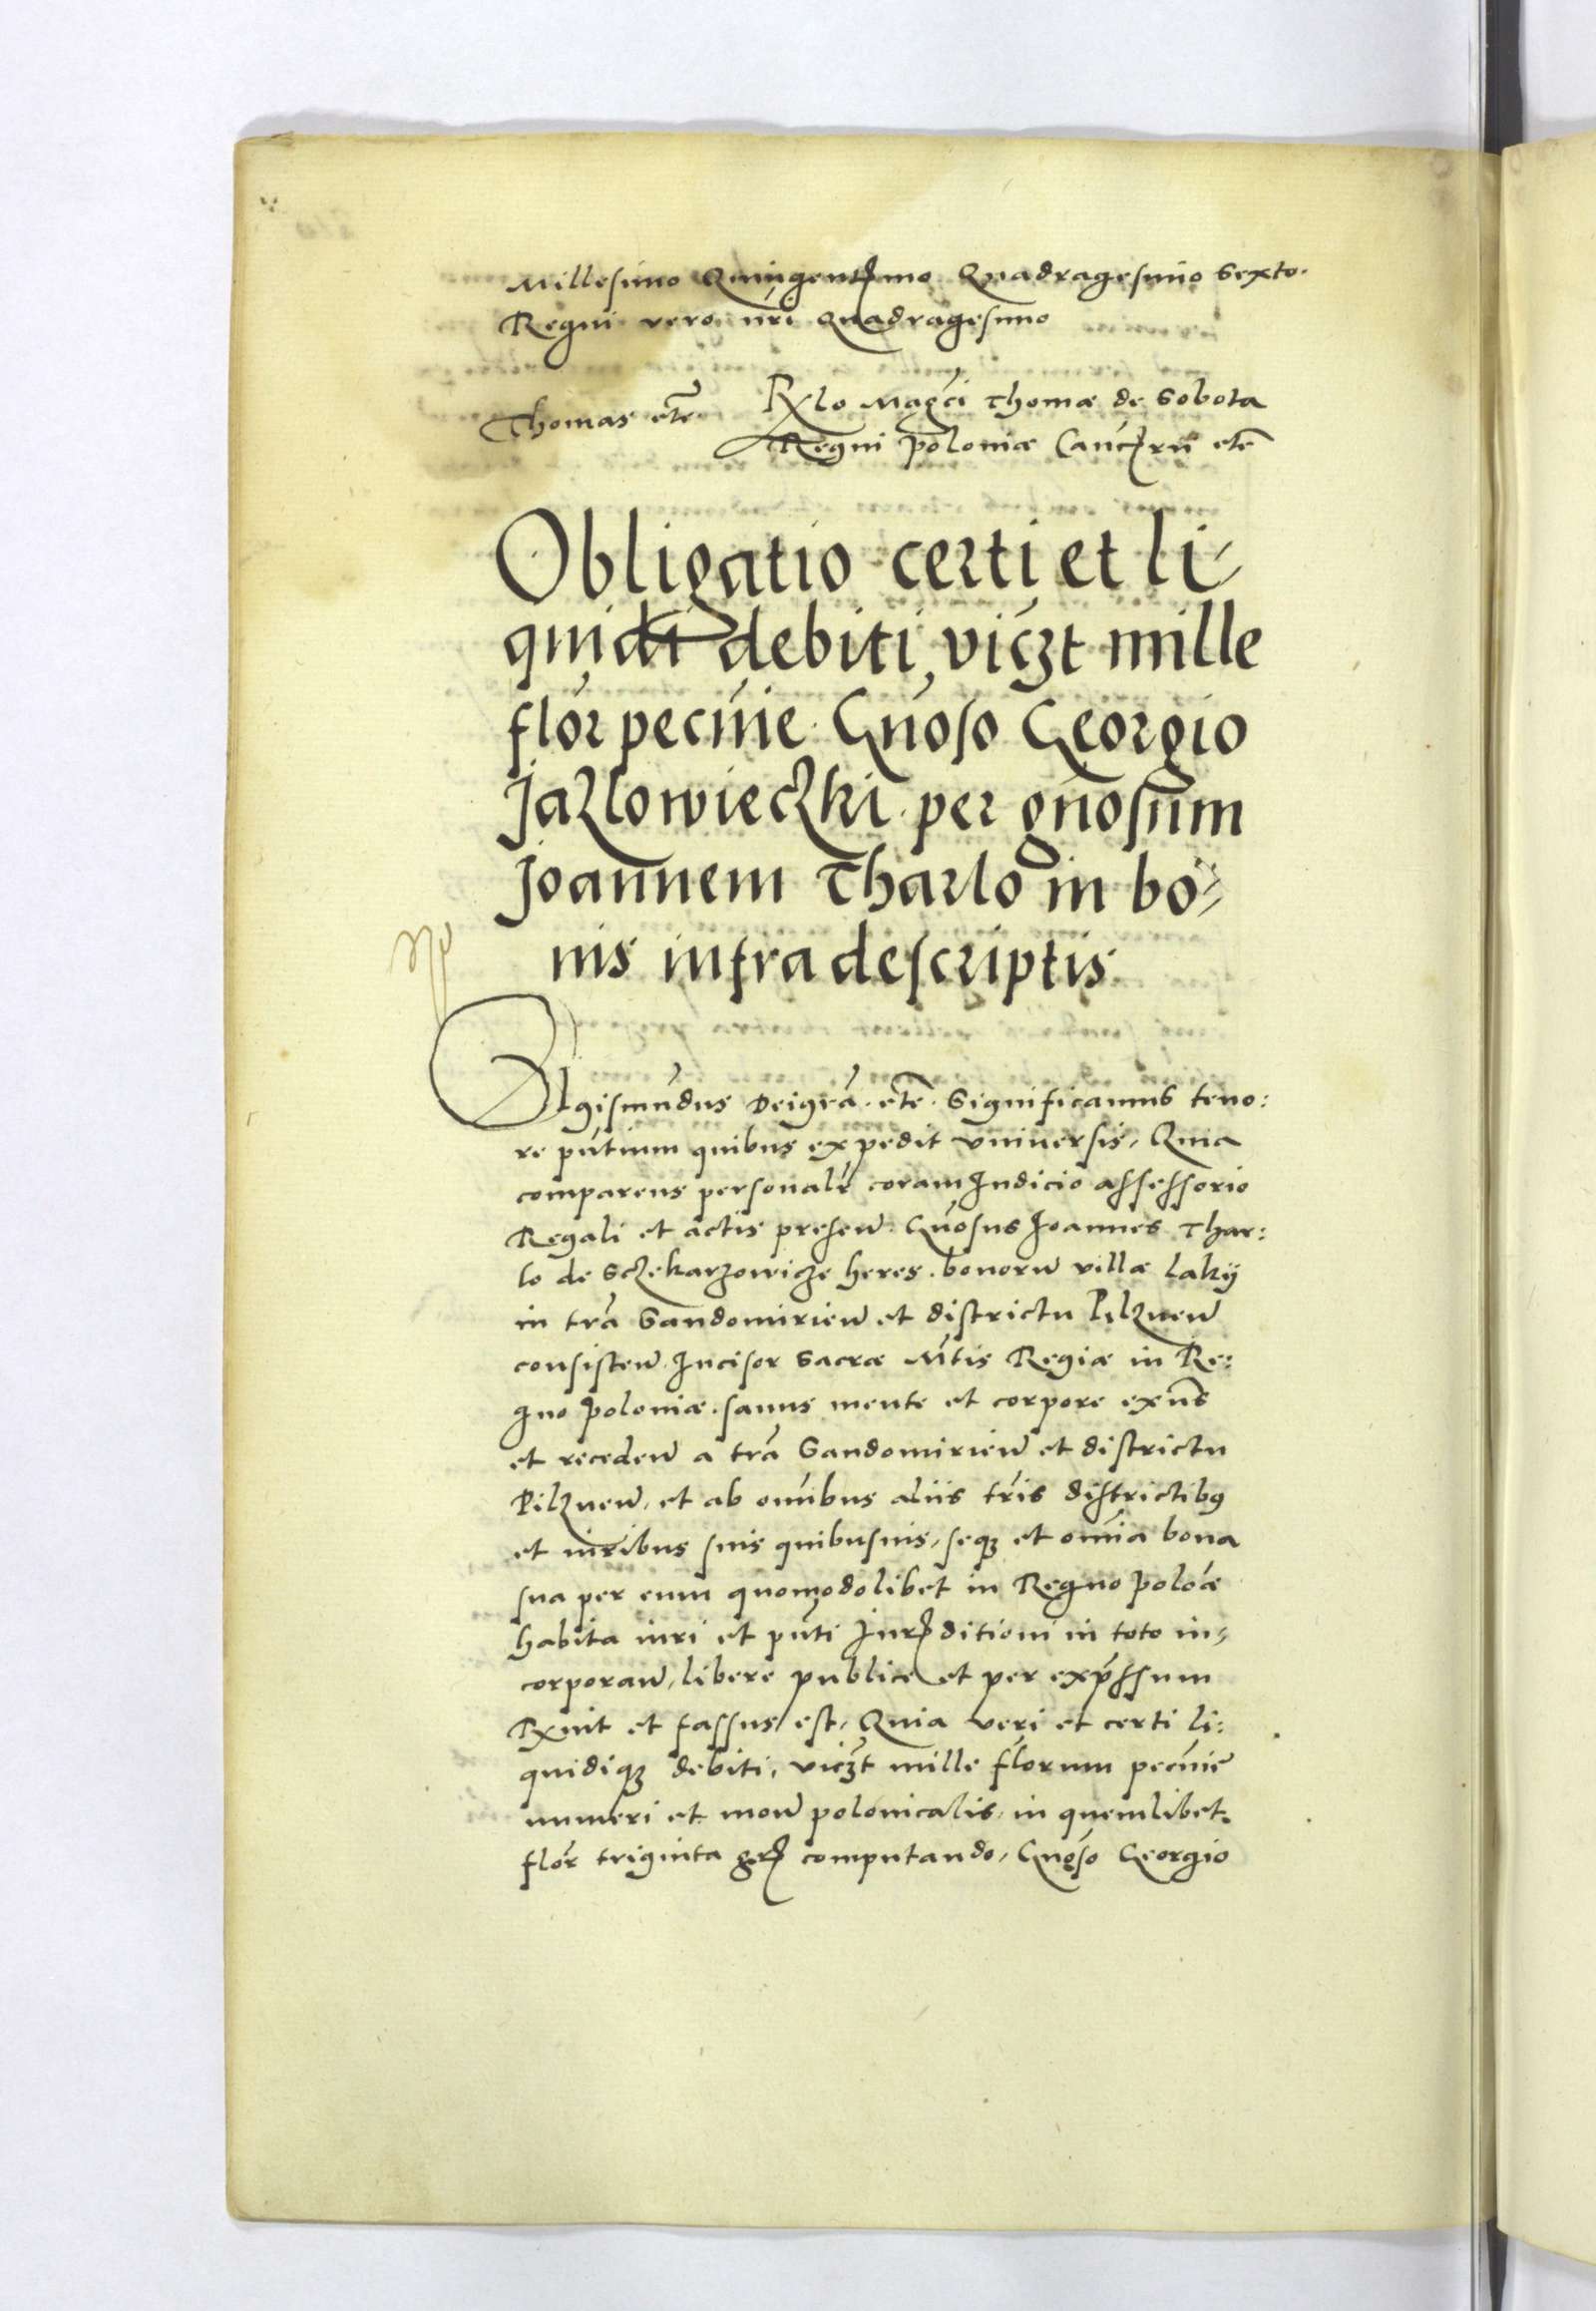 Millesimo Quingentmo Quadragesimo Sexto.
Regni vero nri Quadragesimo
Thomas etc Rlo Magci Thomæ de Sobota
Regni Poloniæ Cancrii etc
Obligatio certi et li-
quidi debiti, viczt mille
flor pecunie Gnoso Georgio
Jazlowieczki per gnosum
Joannem Tharlo in bo-
nis infra descriptis
Sigismundus Dei gra. etc. Significamus teno:
re pntium quibus expedit universis, Quia
comparens personalr coram Judicio assessorio
Regali et actis presen. Gnosus Joannes Thar:
lo de Sczekarzowicze heres bonorum villæ Laky
in tra Sandomirien et districtu Pilznen
consisten. Incisor Sacræ Mtis Regiæ in Re:
gno Poloniæ. sanus mente et corpore exns
et receden a tra Sandomirien et districtu
Pilznen, et ab omibus aliis tris districtibus
et iuribus suis quibusuis, seqz et omia bona
sua per eum quomodolibet in Regno Poloæ
habita iuri et pnti Jurditioni in toto in-
corporan, libere publice et per expssum
Rxuit et fassus est, Quia veri et certi li:
quidiqz debiti, viczt mille florum pecunie
numeri et mon polonicalis, in quemlibet
flor triginta gr computando, Gnoso Georgio